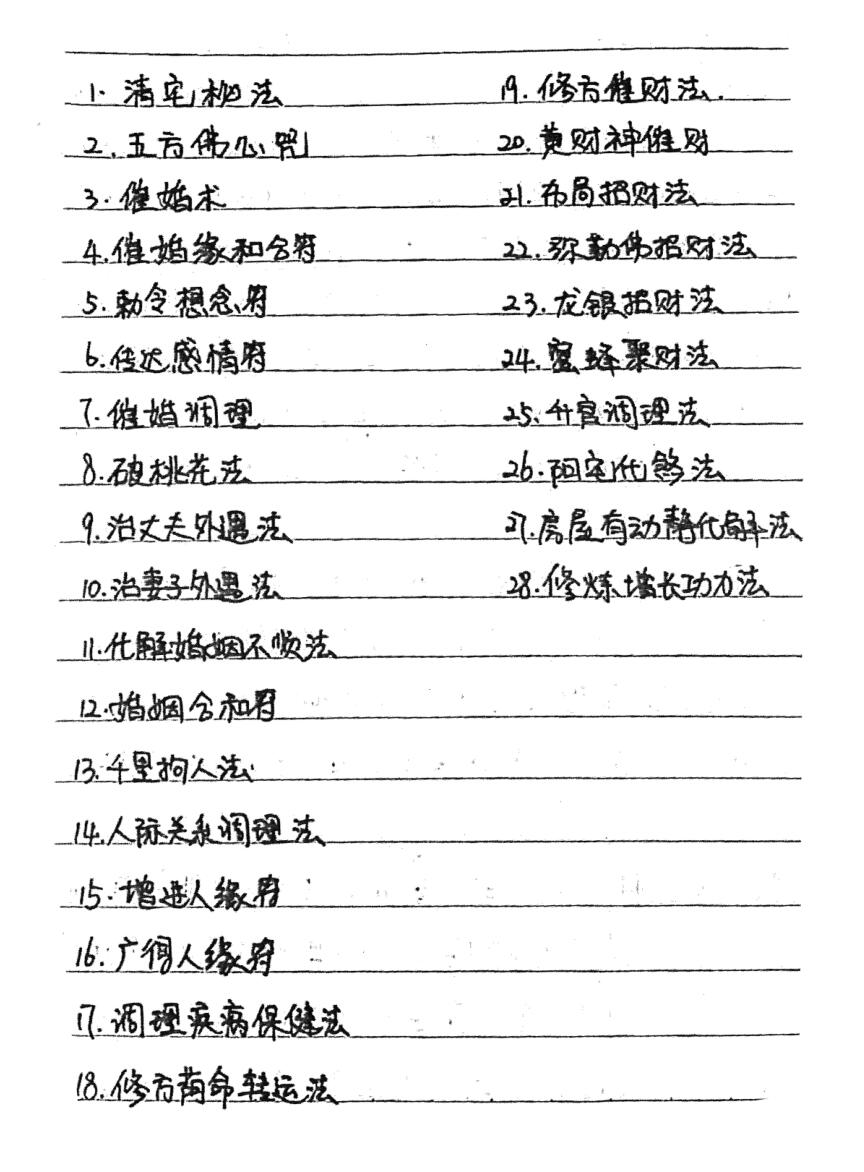 1. 清宅秘法
2. 五方佛心咒
3. 催婚术
4. 催婚缘和合符
5. 勅令想念符
6. 传达感情符
7. 催婚调理
8. 破桃花法
9. 治丈夫外遇法
10. 治妻子外遇法
11. 化解婚姻不顺法
12. 婚姻合和符
13. 千里拘人法
14. 人际关系调理法
15. 增进人缘符
16. 广得人缘符
17. 调理疾病保健法
18. 修方荫命转运法
19. 修方催财法.
20. 黄财神催财
21. 布局招财法
22. 弥勒佛招财法
23. 龙银招财法
24. 蜜蜂聚财法
25. 升官调理法
26. 阳宅化煞法
27. 房屋有动静化解法
28. 修炼增长功力法